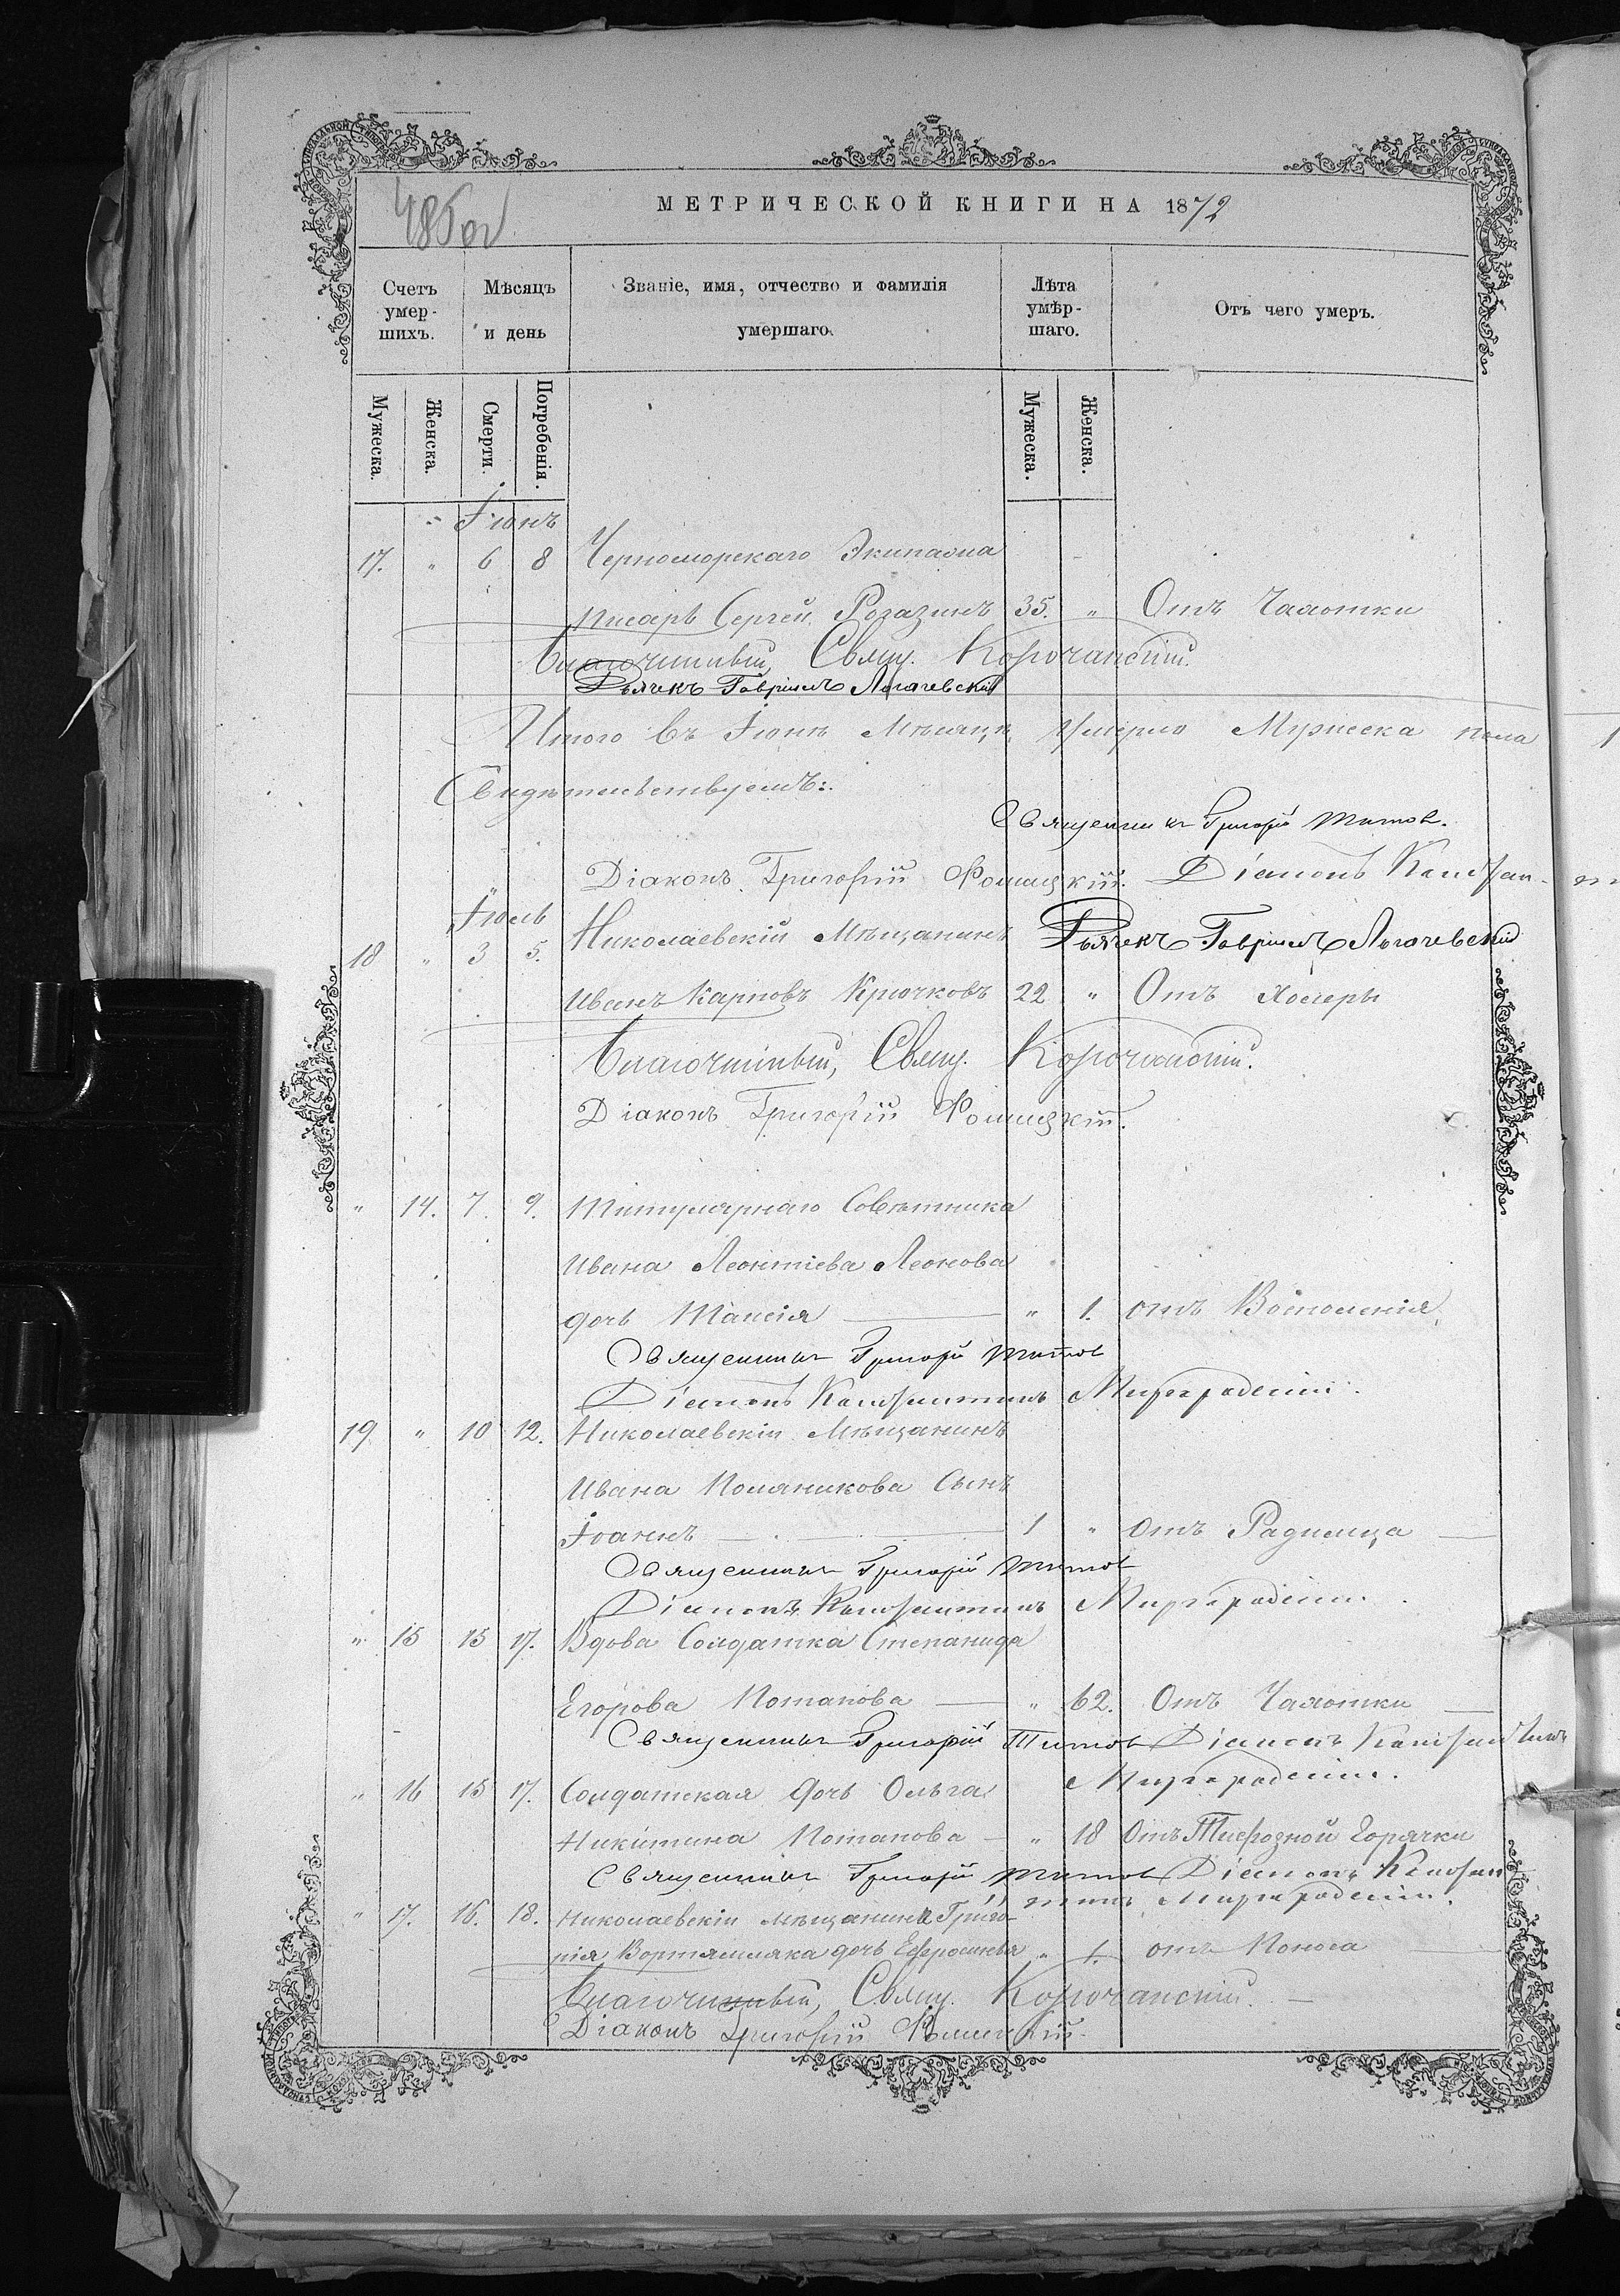 485 об
МЕТРИЧЕСКОЙ КНИГИ НА 1872
Счетъ умер-шихъ.
Мѣсяцъ и день
Званіе, имя, отчество и фамилія умершаго.
Лѣта умѣр-шаго.
Отъ чего умеръ.
Мужеска. Женска. Смерти. Погребенія. Мужеска. Женска.
" Іюнь
17. " 6 8 Черноморскаго Экипажа
писарь Сергей Рогазинъ 35. " Отъ Чахотки
Благочинный, Свящ. Корочанскій.
Дьячекъ Гавріилъ Логачевскій
Итого въ Іюнѣ Мѣсяцѣ Умерло Мужеска пола 1
Свидѣтельствуемъ:
Священникъ Григорій Титов.
Діаконъ Григорій Фомицкій. Діаконъ Констан-
Іюль
18 " 3 5. Николаевскій Мѣщанинъ Дьячекъ Гавріилъ Логачевскій
Иванъ Карповъ Крючковъ 22 " Отъ Холеры
Благочинный, Свящ. Корочанскій.
Діаконъ Григорій Фомицкій.
" 14. 7. 9. Титулярнаго Совѣтника
Ивана Леонтіева Леонова
дочь Таисія " 1. отъ Восполенія.
Священникъ Григорій Титов
Діаконъ Константинъ Миргородскій.
19 " 10 12. Николаевскій Мѣщанинъ
Ивана Сынъ
Іоаннъ 1 " Отъ Родимца
Священникъ Григорій Титов
Діаконъ Константинъ Миргородскій.
" 15 15 17. Вдова Солдатка Степанида
Егорова Потапова " 62. Отъ Чахотки
Священникъ Григорій Титов Діаконъ Константинъ
Миргородскій.
" 16 15 17. Солдатская дочь Ольга
Никитина Потапова " 18 Отъ Тифозной Горячки
Священникъ Григорій Титов Діаконъ Констан
тинъ Миргородскій.
" 17. 16. 18. Николаевскій мѣщанина
дочь Ефросинія " 1. отъ Поноса
Благочинный, Свящ. Корочанскій.
Діаконъ Григорій Фомицкій.